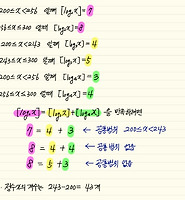 200≤x<256 일때 [log₂x]=7
256≤x≤300 일때 [log₂x]=8
200≤x<243 일때 [log₃x]=4
243≤x≤300 일때 [log₃x]=5
200≤x<256 일때 [log₄x]=3
256≤x≤300 일때 [log₄x]=4
[log₂x]=[log₃x]+[log₄x] 를 만족하려면
7 = 4 + 3 ← 공통범위 200≤x<243
8 = 4 + 4 ← 공통범위 없음
8 = 5 + 3 ← 공통범위 없음
정수x의 개수는 243-200 = 43개